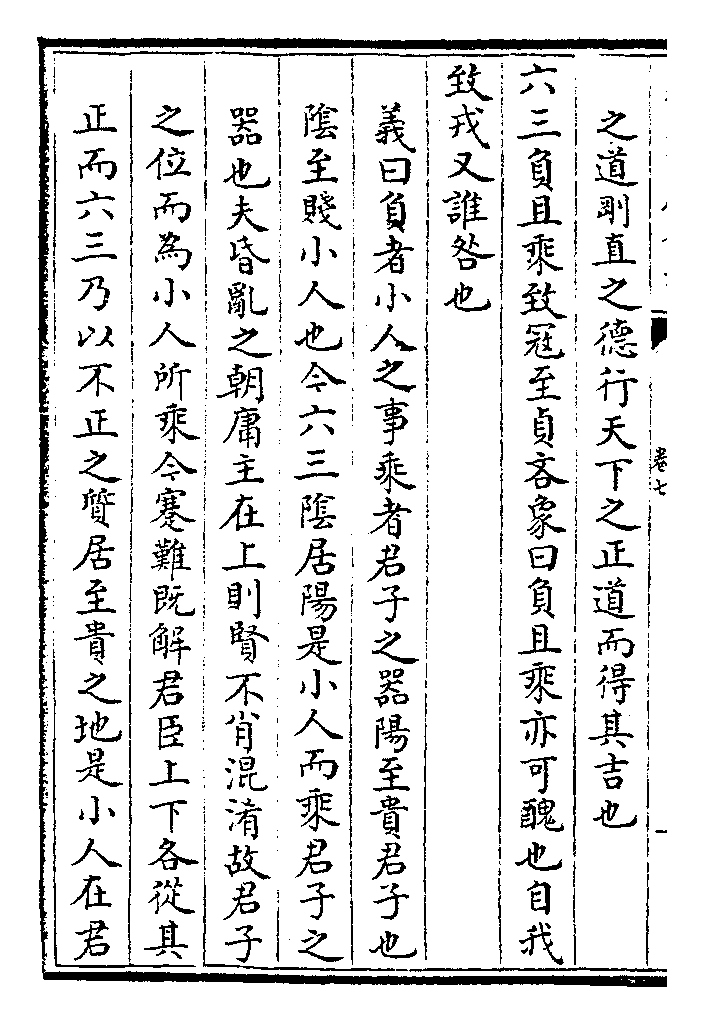 之道剛直之德行天下之正道而得其吉也
六三負且乘致寇至貞吝象曰負且乘亦可醜也自我
致戎又誰咎也
義曰負者小人之事乘者君子之器陽至貴君子也
隂至賤小人也今六三隂居陽是小人而乘君子之
器也夫昏亂之朝庸主在上則賢不肖混淆故君子
之位而為小人所乘今蹇難既解君臣上下各從其
正而六三乃以不正之質居至貴之地是小人在君
卷七